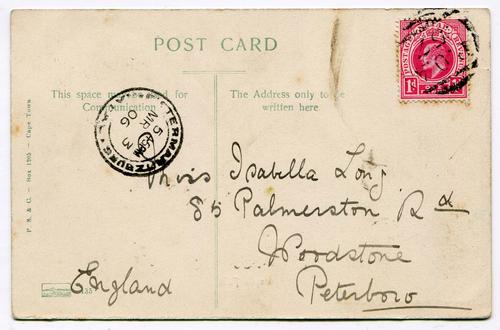 POST CARD
This space may be used for
Communication
The Address only to be
written here.
POSTAGE REVENUE
1d
PIETERMARITZBURG NATAL
5
MR 3
06
Miss Isabella Long
85 Palmerston Rd
Woodstone
Peterboro
England
P. S. & C. - Box 1295 - Cape Town
135